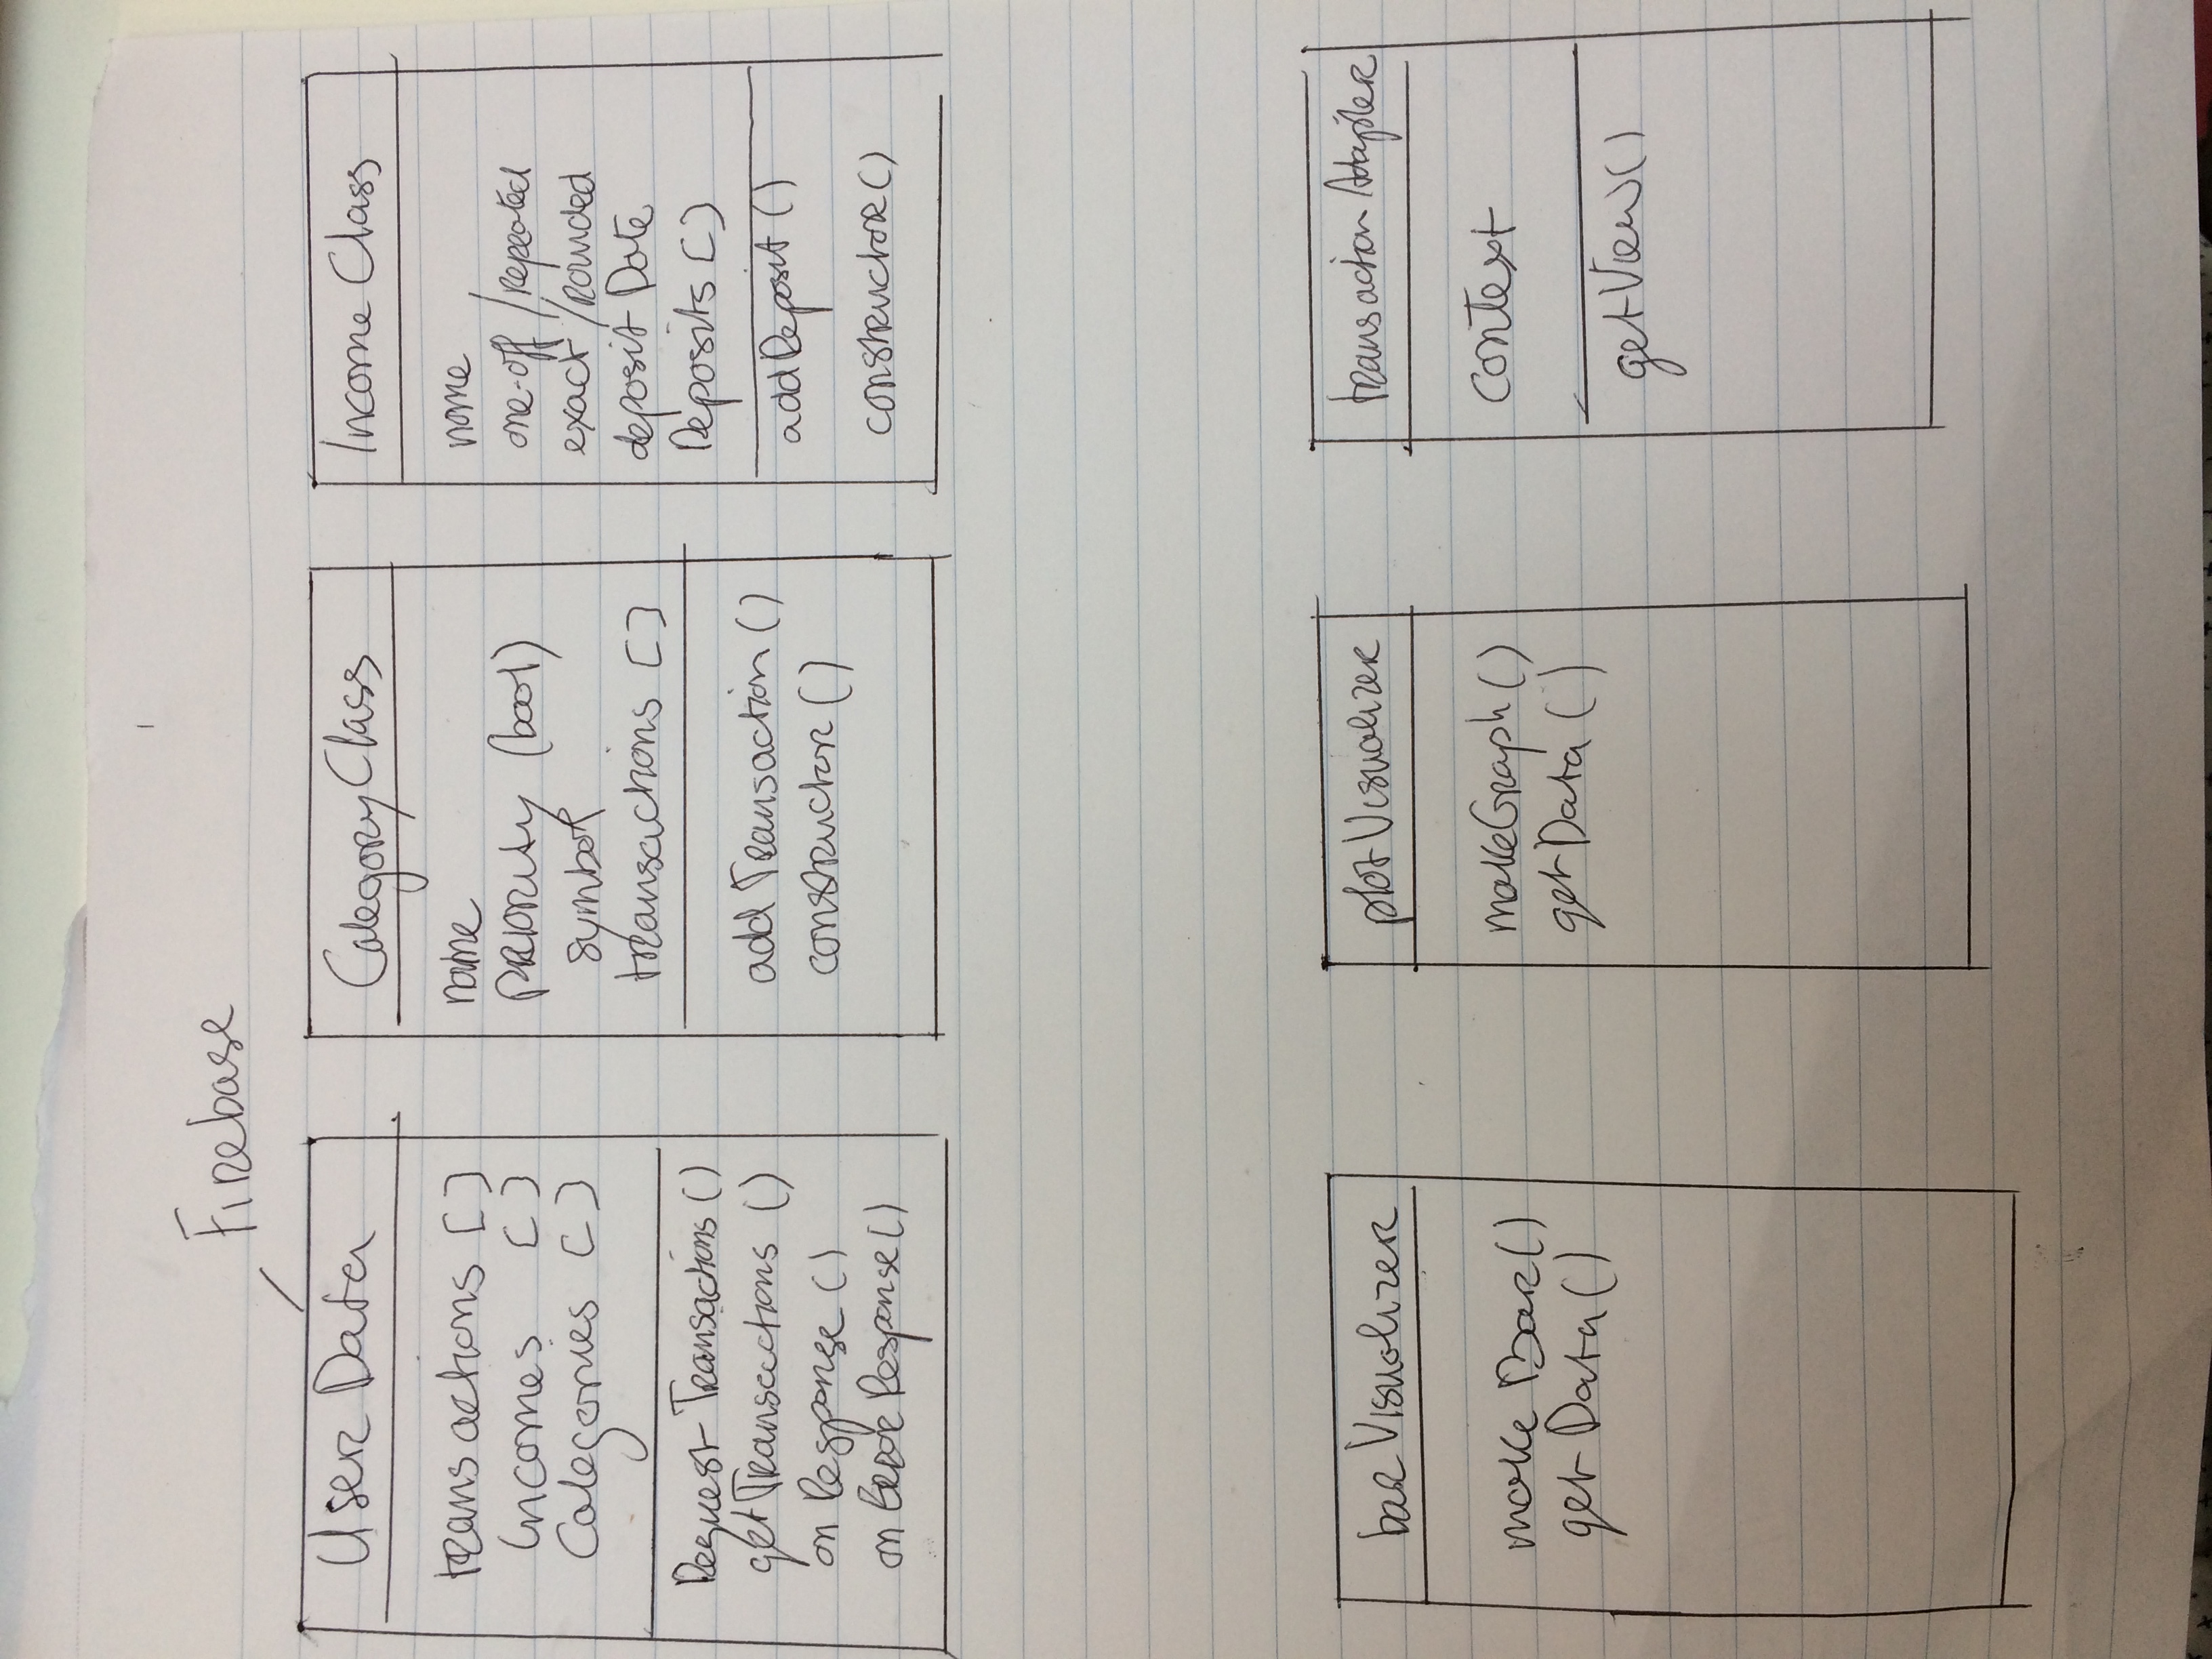 Firebase
User Data
transactions []
Incomes []
Categories []
Request Transactions ()
getTransactions ()
on Response ()
on Error Response ()
Category Class
name
Priority (bool)
symbol
transactions []
add Transaction ()
constructor ()
Income Class
name
one-off / repeated
exact / rounded
deposit Date
Deposits []
addDeposit ()
constructor ()
bar Visualizer
make Bar ()
get Data ()
plot Visualizer
makeGraph ()
get Data ()
transaction Adapter
context
getView ()